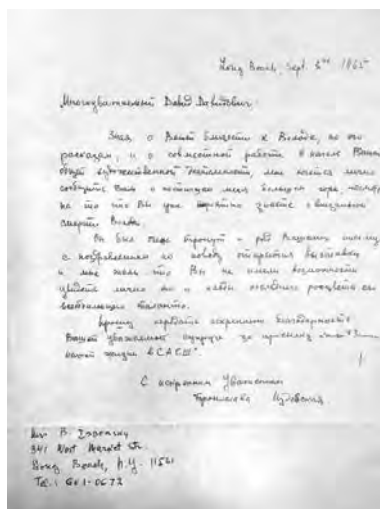 Long Beach, Sept. 5th 1965
Многоуважаемый Давид Давидович
Зная о Вашей близости к Володе, по его
рассказам, и о совместной работе в начале Вашей
общей художественной деятельности, мне хочется лично
сообщить Вам о постигшем меня большом горе
на то что Вы уже знаете о внезапной
смерти Володи.
Он был очень тронут и рад Вашему письму
с поздравлением по поводу открытия выставки
и мне жаль что Вы не имели возможности
увидеть лично его
выставки таланта.
Прошу передать искреннюю благодарность
Вашей уважаемой супруге за присылку
вашей жизни в САСШ"
С искренним уважением
Бронислава Издебская
Mrs B. Izdebsky
341 West Market Str.
Long Beach, N.Y. 11561
Tel.: GE1-0672